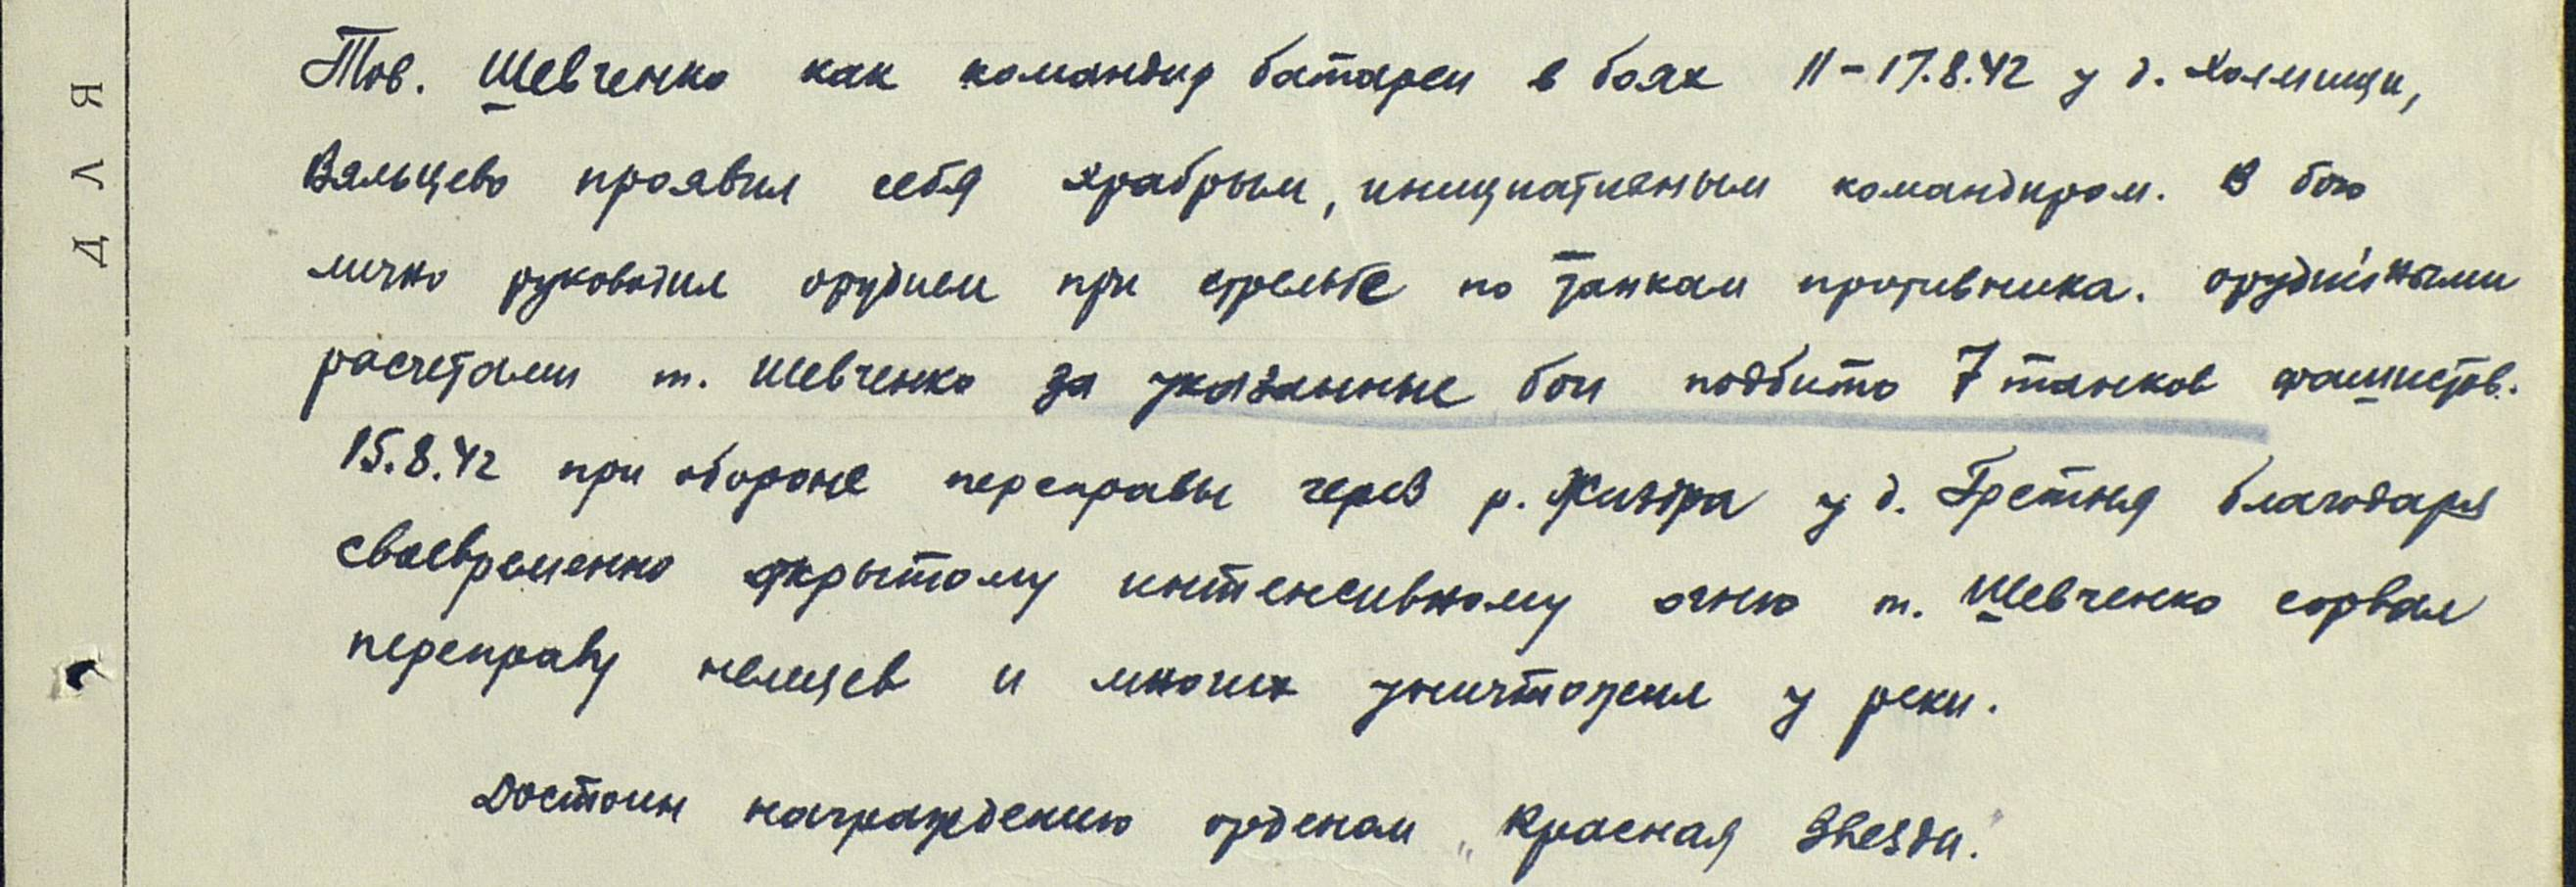 ДЛЯ
Тов. Шевченко как командир батареи в боях 11-17.8.42 у д. Холмищи,
Вяльцево проявил себя храбрым, инициативным командиром. В бою
лично руководил орудием при стрельбе по танкам противника. орудийными
расчетами т. Шевченко за указанные бои подбито 7 танков фашистов.
15.8.42 при обороне переправы через р. Жиздра у д. Гретня благодаря
своевременно открытому интенсивному огню т. Шевченко сорвал
переправу немцев и многих уничтожил у реки.
Достоин награждению орденом „Красная Звезда."